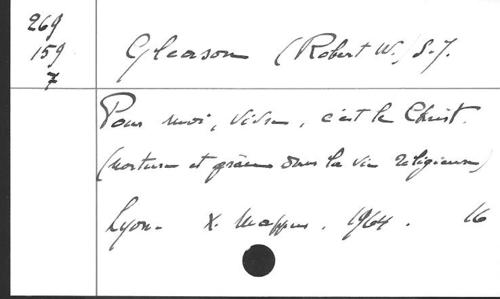 269
159
7
Gleason (Robert W.) S.J.
Pour moi, vivre, c'est le Christ.
(nature et grâce dans la vie religieuse)
Lyon. X. Mappus. 1964. 16